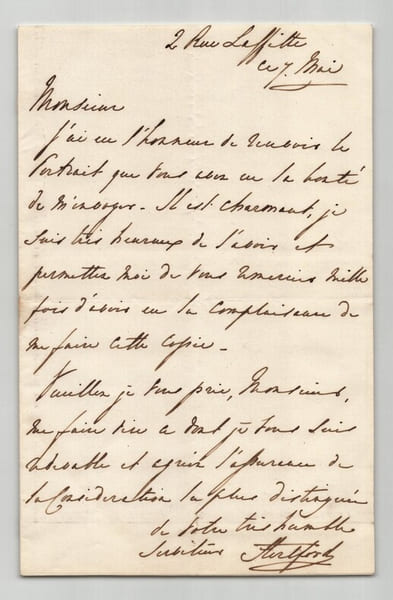 2 Rue Laffitte
ce 7. Mai
Monsieur
J'ai eu l'honneur de recevoir le
Portrait que vous avez eu la bonté
de m'envoyer - Il est charmant, je
suis très heureux de l'avoir et
permettez moi de vous remercier mille
fois d'avoir eu la complaisance de
me faire cette copie -
Veuillez je vous prie, Monsieur,
me faire dire ce dont je vous suis
redevable et agréer l'assurance de
la Considération la plus distinguée
de votre très humble
Serviteur Hertford